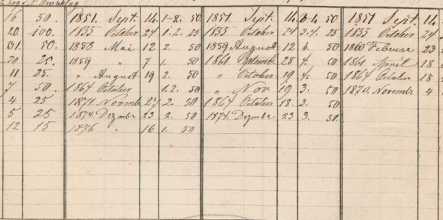 16 50. 1851. Sept. 14. 1-2. 50 1851 Sept. 14. 3-4. 50 1851 Sept. 14.
20 100. 1855 October 24 1.2. 25 1855 October 24 3.4. 25 1855 October 24
31. 50. 1858 Mai 12 2. 50 1859 August 12 3. 50 1860 Februar 23
20. 25. 1859 " 7 1. 50 1861 28 4. 50 1861 April 18
11 25. " August 19 2. 50 " October 19 4. 50 1864 October 18
7 50. 1864 October 1.2. 50 " Nov 19 3. 50 1870 Novembe 4
4 25 1871 Novemb 27 2. 50 1864 October 18 3. 50
5 25 1874 Dezembe 23 2. 50 1874 Dezember 23 3. 50
12 15 1876 " 16 1. 50